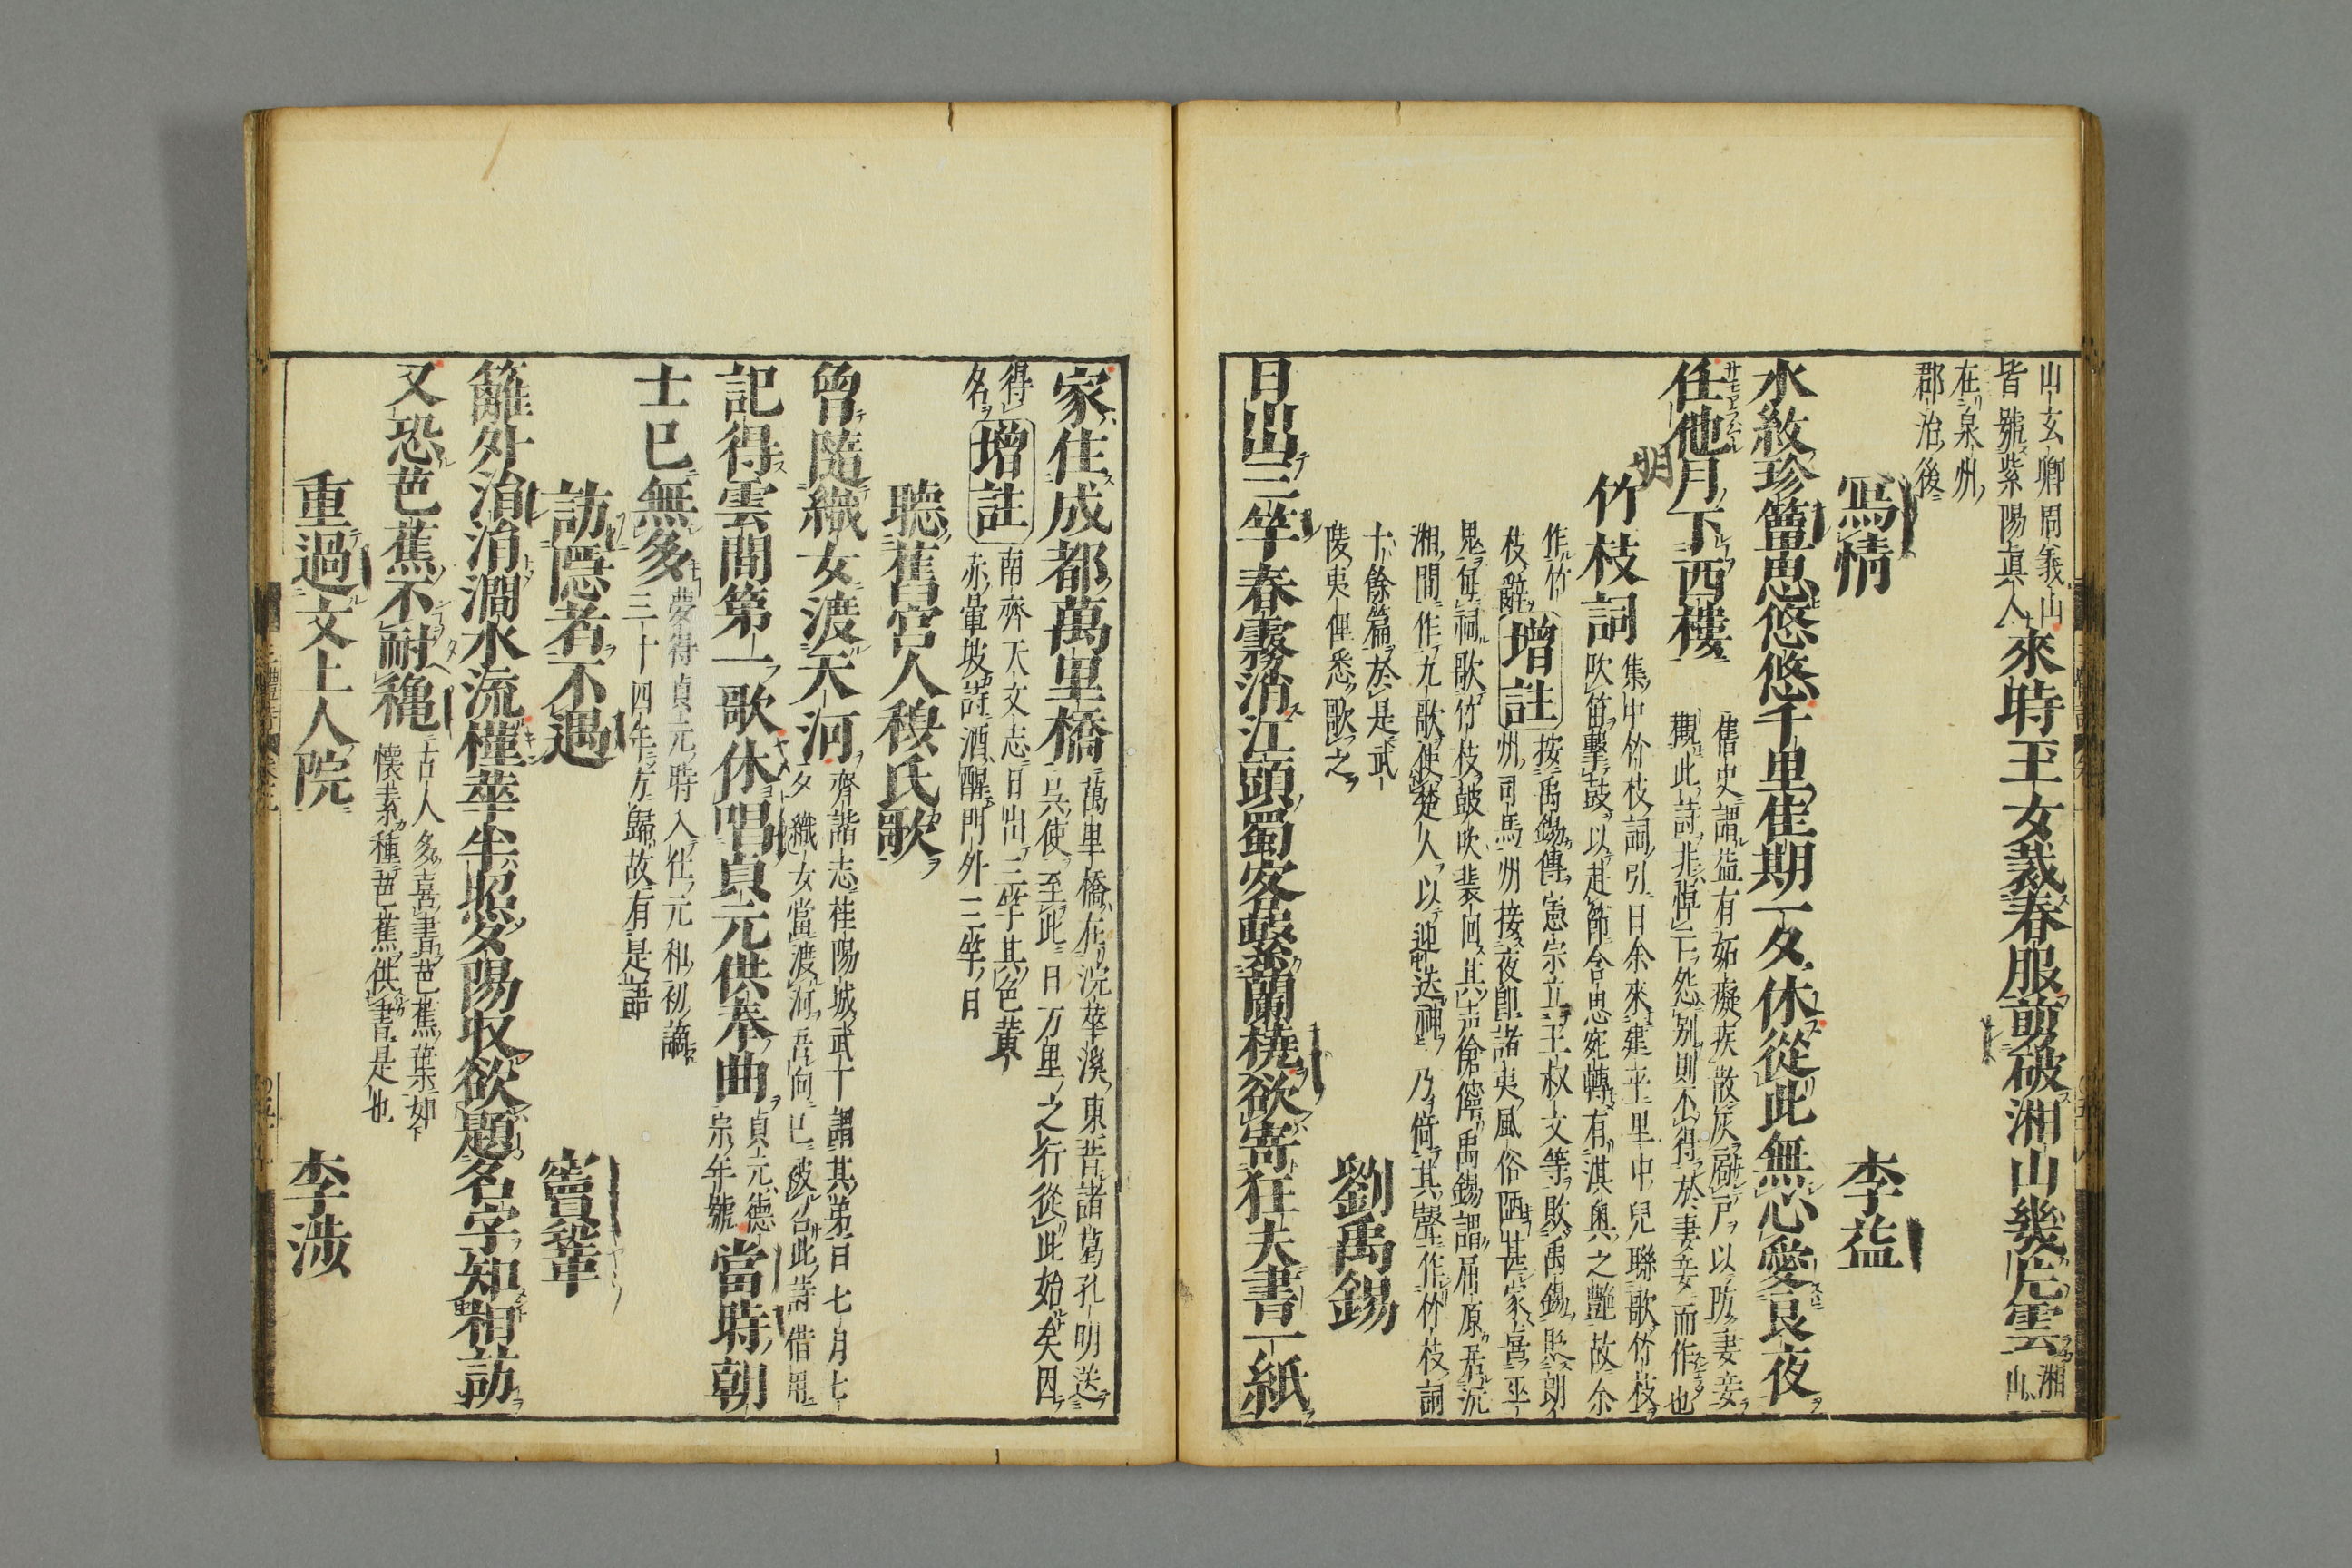 山玄卿周義山
皆號紫陽真人來時玉女裁春服剪破湘山幾片雲湘
山
在泉州
郡治後
寫情
李益
水紋珍簟思悠悠千里佳期一夕休從此無心愛良夜
任他月下西樓
明
舊史謂益有妬癡疾散灰扄戸以防妻妾
觀此詩非悼亡怨別則不得於妻妾而作也
竹枝詞
集中竹枝詞引曰余來建平里中兒聯歌竹枝
吹笛擊鼓以赴節含思宛轉有淇奧之艶故余
作竹
枝辭
增註
按禹錫傳憲宗立王叔文等敗禹錫貶朗
州司馬州接夜郎諸夷風俗陋甚家喜巫
鬼每祠歌竹枝鼓吹裴囘其声傖儜禹錫謂屈原居沅
湘間作九歌使楚人以迎送神乃倚其聲作竹枝詞
十餘篇於是武
陵夷俚悉歌之
劉禹錫
日出三竿春霧消江頭蜀客駐蘭橈欲寄狂夫書一紙
家住成都萬里橋
萬里橋在浣花溪東昔諸葛孔明送
吳使至此曰万里之行從此始矣因
得
名
增註
南齊天文志日出三竿其色黃
赤暈坡詩酒醒門外三竿日
聽舊宮人穆氏歌
曾隨織女渡天河
齊諧志桂陽城武丁謂其弟曰七月七
夕織女當渡河吾向已被召此詩借用
記得雲間第一歌休唱貞元供奉曲
貞元德
宗年號
當時朝
士已無多
夢得貞元時入仕元和初謫
三十四年方歸故有是語
訪隱者不遇
竇鞏
籬外涓涓澗水流槿花半照夕陽收欲題名字知相訪
又恐芭蕉不耐穐
古人多喜書芭蕉葉如
懷素種芭蕉供書是也
重過文上人院
李涉